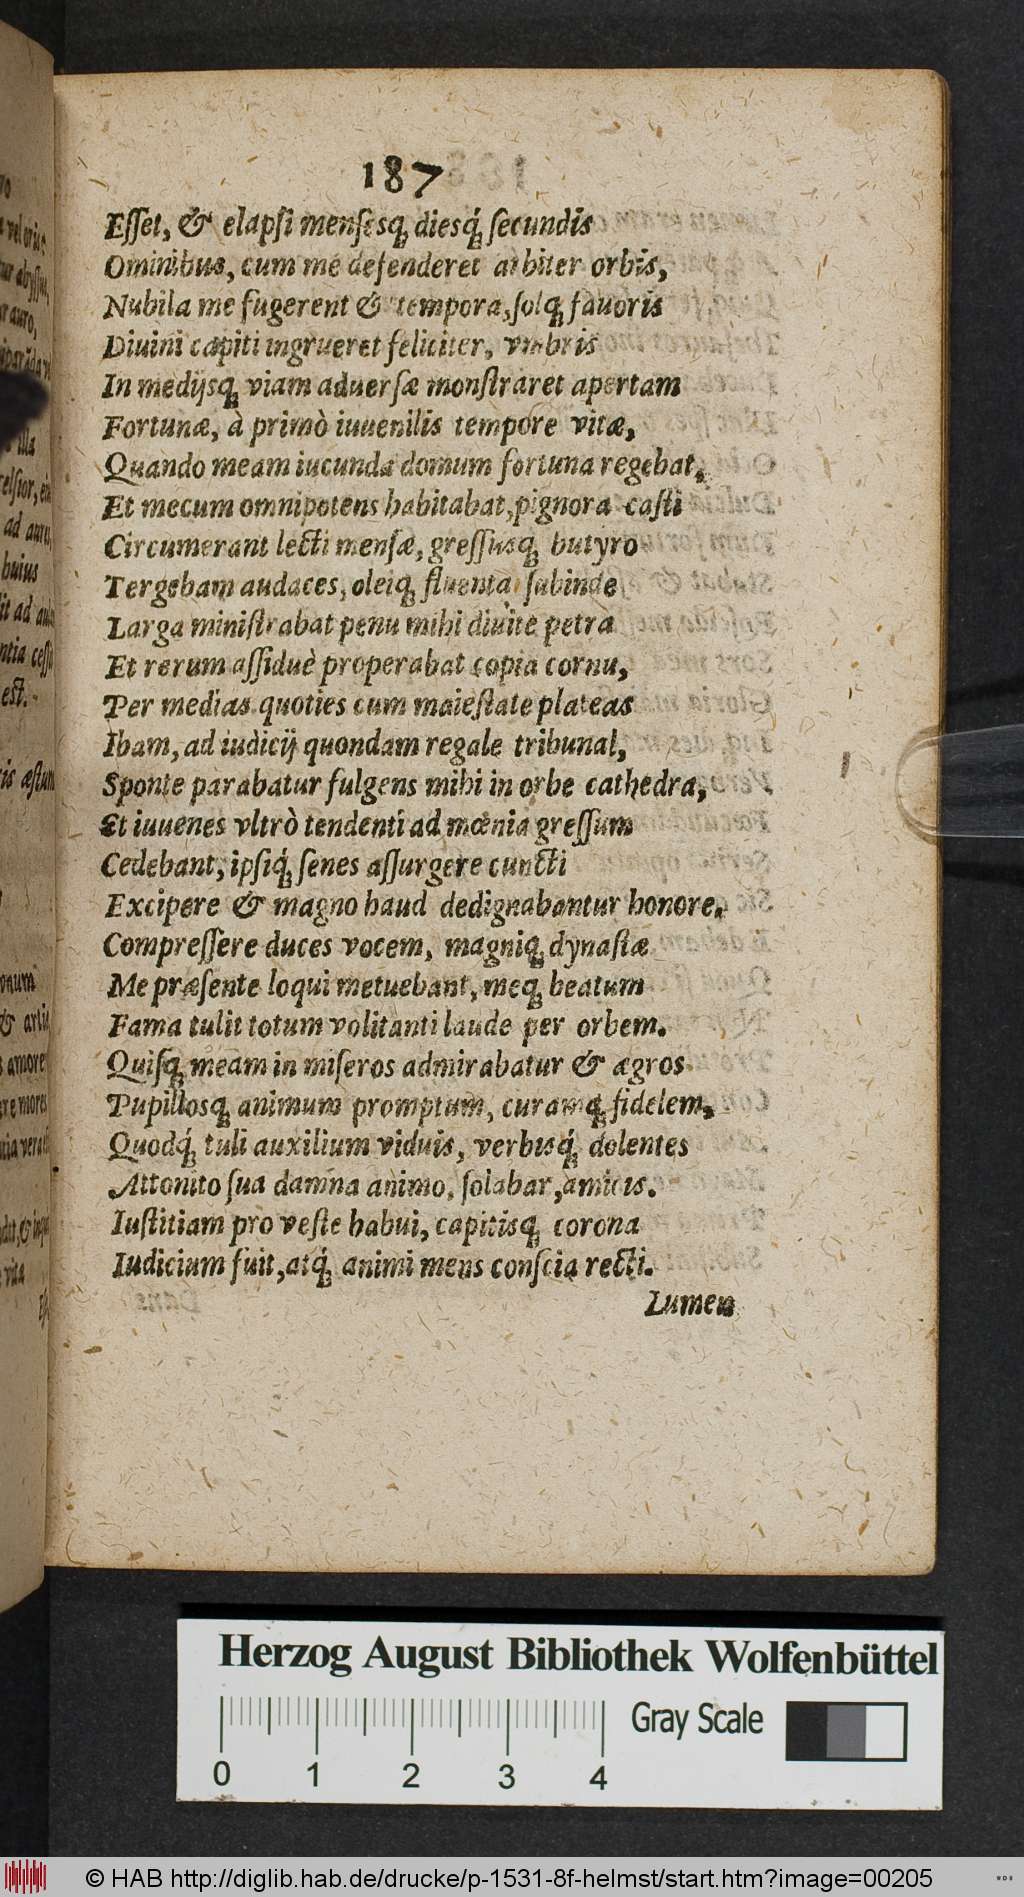 187
Eſſet, & elapſi menſesq́; diesq́; ſecundis
Ominibus, cum me defenderet arbiter orbis,
Nubila me fugerent & tempora, ſolq; fauoris
Diuini capiti ingrueret feliciter, vmbris
In medijsq; viam aduerſæ monſtraret apertam
Fortunæ, à primò iuuenilis tempore vitæ,
Quando meam iucunda domum fortuna regebat,
Et mecum omnipotens habitabat, pignora caſti
Circumerant lecti menſæ, greſſusq; butyro
Tergebam audaces, oleiq; fluenta ſubinde
Larga miniſtrabat penu mihi diuite petra
Et rerum aſſiduè properabat copia cornu,
Per medias quoties cum maieſtate plateas
Ibam, ad iudicij quondam regale tribunal,
Sponte parabatur fulgens mihi in orbe cathedra,
Et iuuenes vltrò tendenti ad mœnia greſſum
Cedebant, ipſiq́; ſenes aſſurgere cuncti
Excipere & magno haud dedignabantur honore.
Compreſſere duces vocem, magniq; dynaſtæ
Me præſente loqui metuebant, meq; beatum
Fama tulit totum volitanti laude per orbem.
Quiſq; meam in miſeros admirabatur & ægros
Pupillosq; animum promptum, curamq; fidelem,
Quodq́; tuli auxilium viduis, verbisq́; dolentes
Attonito ſua damna animo, ſolabar, amicis.
Iuſtitiam pro veſte habui, capitisq; corona
Iudicium fuit, atq́; animi mens conſcia recti.
Lumen
Herzog August Bibliothek Wolfenbüttel
Gray Scale
0 1 2 3 4
© HAB http://diglib.hab.de/drucke/p-1531-8f-helmst/start.htm?image=00205